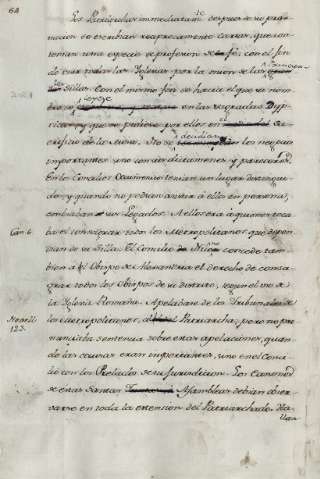 64
Los Patriarcas immediatam.te despues de su pro-
macion se escribian reciprocamente cartas, que con-
tenian una especie de profesion de fé, con el fin
de unir todas las Iglesias por la union de las principa-
les Sillas. Con el mismo fin se hacia el que su nom-
bre se pusiese en las sagradas Dyp-
ticas, y que se pidiese por ellos en el sa-
crificio de la Misa. No se decidian los negocios
importantes sino con su dictamenes y pareceres.
En los Concilios Ecumenicos tenian un lugar distingui-
do, y quando no podian asistir á ellos en persona,
embiaban sus Legados. A ellos era á quienes toca-
Can. 6. ba el consagrar todos los Metropolitanos que depen-
dian de su Silla. El Concilio de Nicea concede tam-
bien á el Obispo de Alexandria el derecho de consa-
grar todos los Obispos de su distrito, segun el uso de
la Iglesia Romana. Apelaban de los Tribunales de
los Metropolitanos, al Patriarcha, pero no pro-
123. nunciaba sentencia sobre estas apelaciones, quan-
do las causas eran importantes, sino en el Conci-
lio con los Prelados de su Jurisdiccion. Los Canones
de estas Santas Asambleas debian obser-
varse en toda la extension del Patriarchado. Ha-